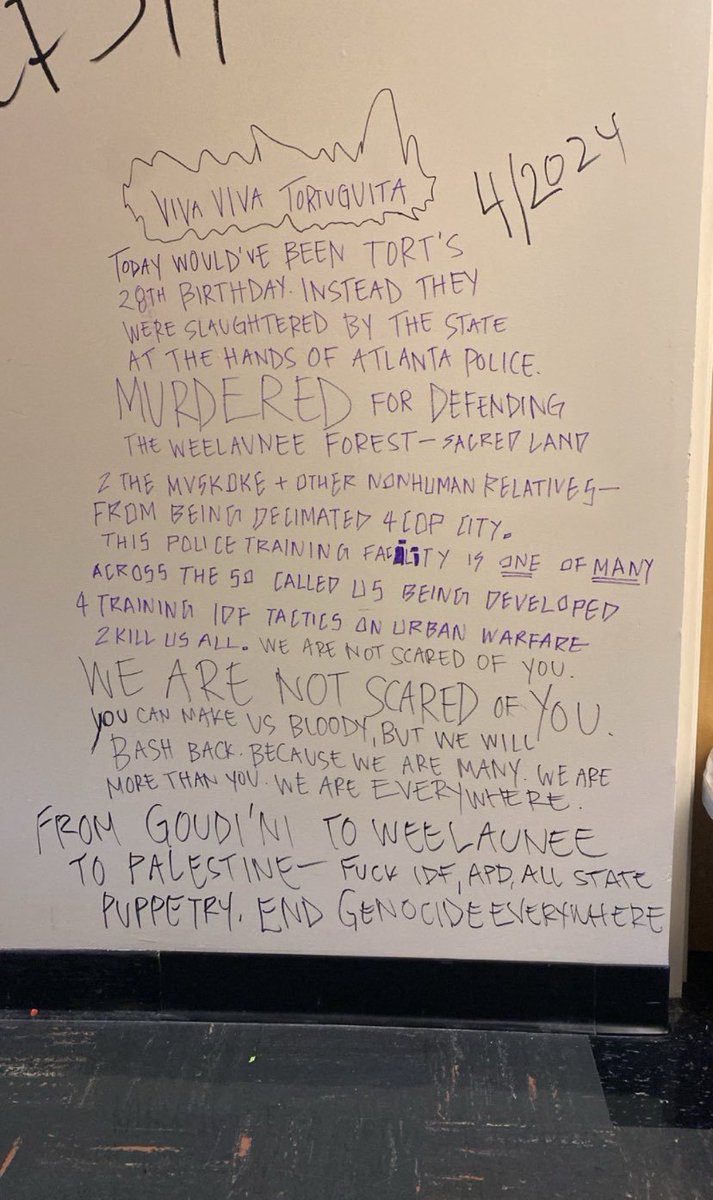 VIVA VIVA TORTUGUITA
4/2024
TODAY WOULD'VE BEEN TORT'S
28TH BIRTHDAY. INSTEAD THEY
WERE SLAUGHTERED BY THE STATE
AT THE HANDS OF ATLANTA POLICE.
MURDERED FOR DEFENDING
THE WEELAUNEE FOREST—SACRED LAND
2 THE MVSKOKE + OTHER NONHUMAN RELATIVES—
FROM BEING DECIMATED 4 COP CITY.
THIS POLICE TRAINING FACILITY IS ONE OF MANY
ACROSS THE SO CALLED US BEING DEVELOPED
4 TRAINING IDF TACTICS ON URBAN WARFARE
2 KILL US ALL. WE ARE NOT SCARED OF YOU.
WE ARE NOT SCARED OF YOU.
YOU CAN MAKE US BLOODY, BUT WE WILL
BASH BACK. BECAUSE WE ARE MANY. WE ARE
MORE THAN YOU. WE ARE EVERYWHERE.
FROM GOUDI'NI TO WEELAUNEE
TO PALESTINE— FUCK IDF, APD, ALL STATE
PUPPETRY. END GENOCIDE EVERYWHERE